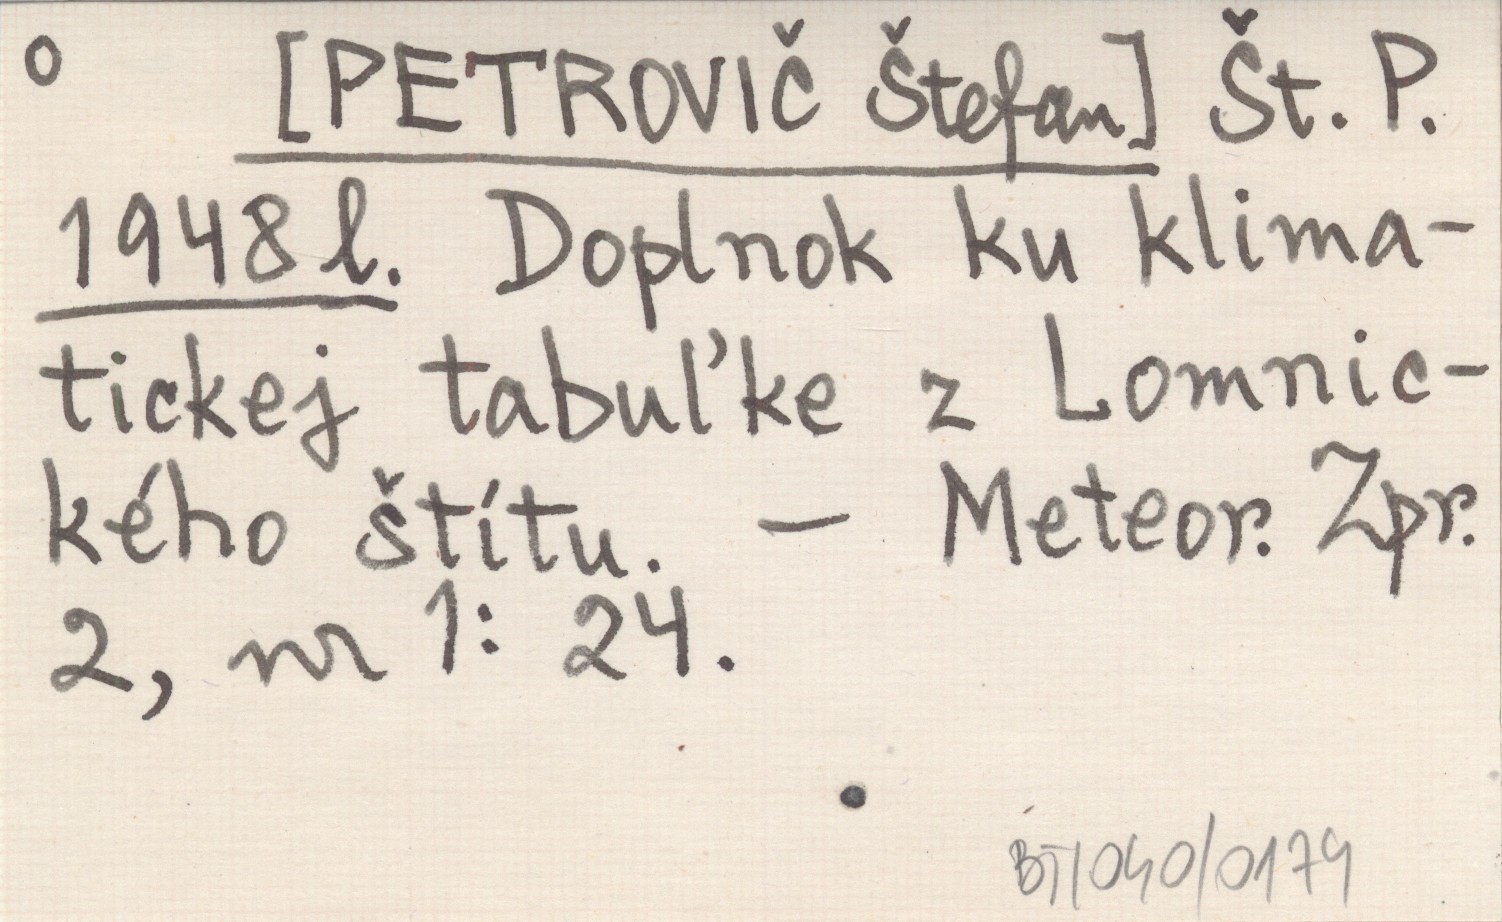 o [PETROVIČ Štefan] Št. P.
1948 l. Doplnok ku klima-
tickej tabuľke z Lomnic-
kého štítu. — Meteor. Zpr.
2, nr 1: 24.
BT/040/0179